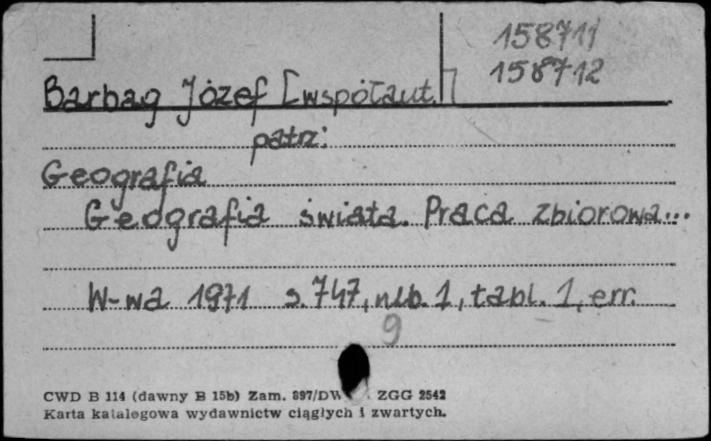 158711/
158712
Barbag Józef [współaut.]
patrz:
Geografia
Geografia świata. Praca zbiorowa...
W-wa 1971 s. 747, nlb. 1, tabl. 1, err.
9
CWD B 114 (dawny B 15b) Zam. 897/DW ZGG 2542
Karta katalogowa wydawnictw ciągłych i zwartych.